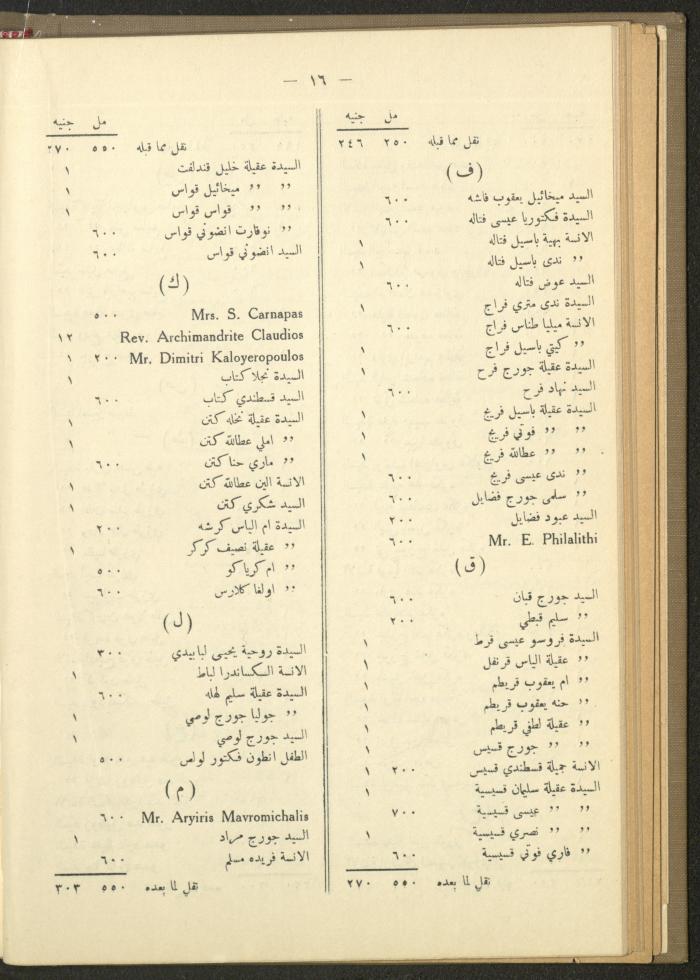 — ١٦ —
مل جنيه
نقل مما قبله ٢٥٠ ٢٤٦
(ف)
السيد ميخائيل يعقوب فاشه ٦٠٠
السيدة فكتوريا عيسى فتاله ٦٠٠
الانسة بهية باسيل فتاله ١
,, ندى باسيل فتاله ١
السيد عوض فتاله ٦٠٠
السيدة ندى متري فراج ١
الانسة ميليا طناس فراج ٦٠٠
,, كيتي باسيل فراج ١
السيدة عقيلة جورج فرح ١
السيد نهاد فرح ٦٠٠
السيدة عقيلة باسيل فريج ١
,, ,, فوتي فريج ١
,, ,, عطالله فريج ١
,, ندى عيسى فريج ٦٠٠
,, سلمى جورج فضايل ٦٠٠
السيد عبود فضايل ٢٠٠
Mr. E. Philalithi ٦٠٠
(ق)
السيد جورج قبان ٦٠٠
,, سليم قبطي ٢٠٠
السيدة فروسو عيسى قرط ١
,, عقيلة الياس قرنفل ١
,, ام يعقوب قريطم ١
,, حنه يعقوب قريطم ١
,, عقيلة لطفي قريطم ١
,, ,, جورج قسيس ١
الانسة جميلة قسطندي قسيس ٢٠٠ ١
السيدة عقيلة سليمان قسيسية ١
,, ,, عيسى قسيسية ٧٠٠
,, ,, نصري قسيسية ١
,, فاري فوتي قسيسية ٦٠٠
نقل لما بعده ٥٥٠ ٢٧٠
مل جنيه
نقل مما قبله ٥٥٠ ٢٧٠
السيدة عقيلة خليل قندلفت ١
,, ,, ميخائيل قواس ١
,, ,, قواس قواس ١
,, نوفارت انضوني قواس ٦٠٠
السيد انضوني قواس ٦٠٠
(ك)
Mrs. S. Carnapas ٥٠٠
Rev. Archimandrite Claudios ١٢
Mr. Dimitri Kaloyeropoulos ٢٠٠ ١
السيدة نجلا كتاب ١
السيد قسطندي كتاب ٦٠٠
السيدة عقيلة نخله كتن ١
,, املي عطالله كتن ١
,, ماري حنا كتن ٦٠٠
الانسة الين عطالله كتن ١
السيد شكري كتن ١
السيدة ام الياس كرشه ٢٠٠
,, عقيلة نصيف كركر ١
,, ام كرياكو ٥٠٠
,, اولغا كلارس ٦٠٠
(ل)
السيدة روحية يحيى لبابيدي ٣٠٠
الانسة الكساندرا لباط ١
السيدة عقيلة سليم لهله ٦٠٠
,, جوليا جورج لوصي ١
السيد جورج لوصي ١
الطفل انطون فكتور لولس ٥٠٠
(م)
Mr. Aryiris Mavromichalis ٦٠٠
السيد جورج مراد ١
الانسة فريده مسلم ٦٠٠
نقل لما بعده ٥٥٠ ٣٠٣